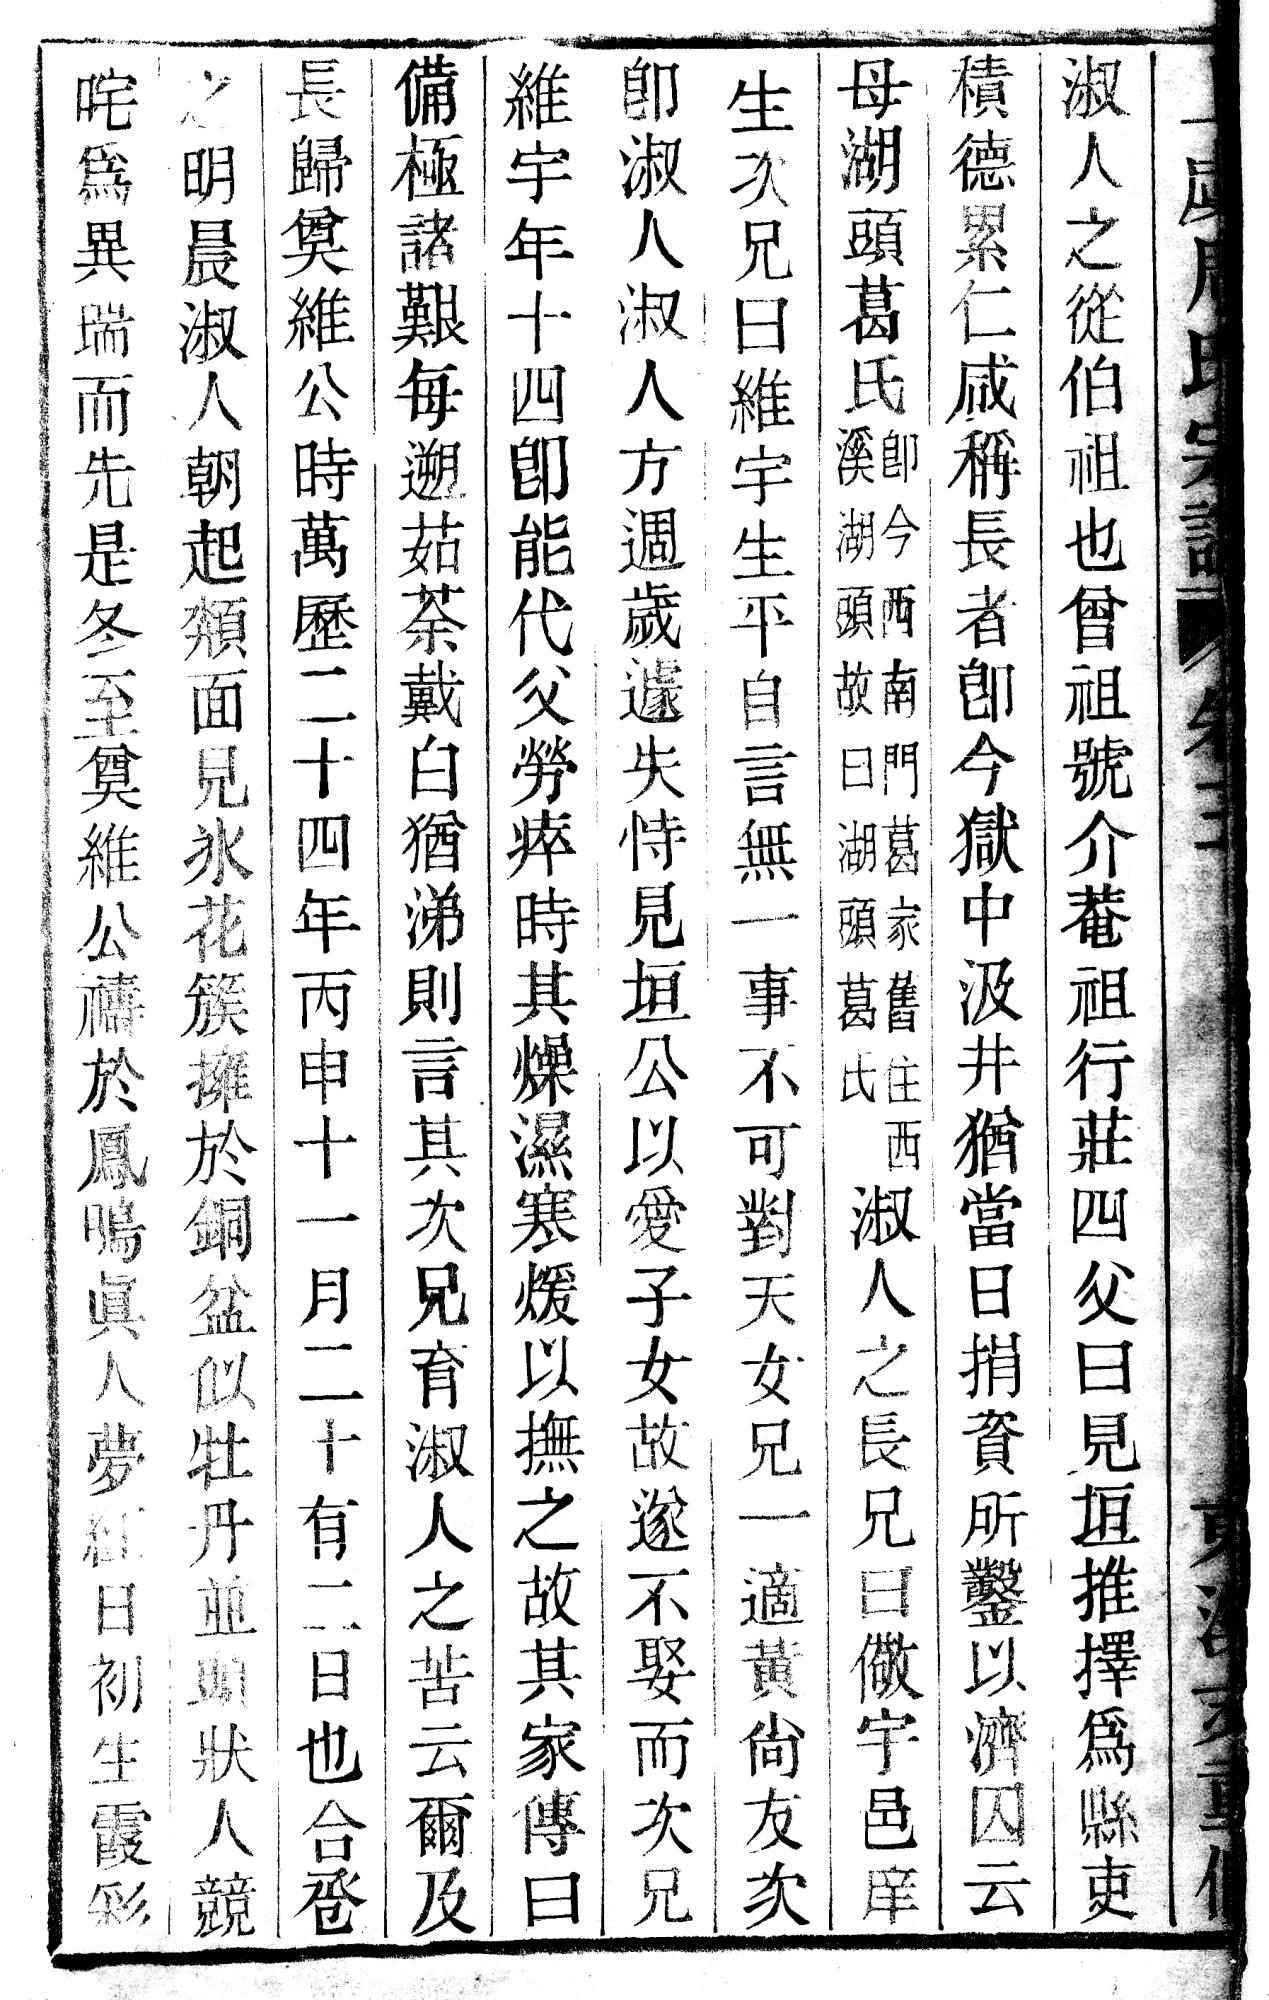 氏宗譜 卷
淑人之從伯祖也曾祖號介菴祖行莊四父曰見垣推擇爲縣吏
積德累仁咸稱長者卽今獄中汲井猶當日捐資所鑿以濟囚云
母湖頭葛氏卽今西南門葛家舊住西溪湖頭故曰湖頭葛氏淑人之長兄曰儆宇邑庠
生次兄曰維宇生平自言無一事不可對天女兄一適黃尙友次
卽淑人淑人方週歲遽失恃見垣公以愛子女故遂不娶而次兄
維宇年十四卽能代父勞瘁時其燥濕寒煖以撫之故其家傳曰
備極諸艱每遡茹荼戴白猶涕則言其次兄育淑人之苦云爾及
長歸奠維公時萬歷二十四年丙申十一月二十有二日也合卺
之明晨淑人朝起頮面見氷花簇擁於銅盆似牡丹並頭狀人競
咤爲異瑞而先是冬至奠維公禱於鳳鳴眞人夢紅日初生霞彩